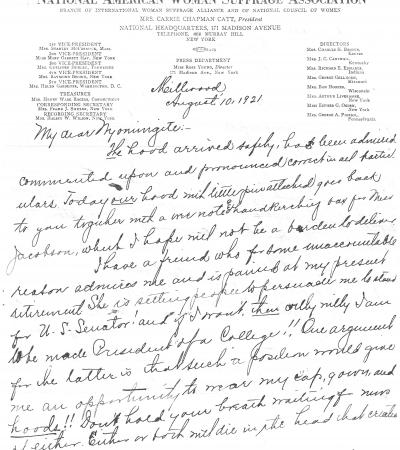 NATIONAL AMERICAN WOMAN SUFFRAGE ASSOCIATION
BRANCH OF INTERNATIONAL WOMAN SUFFRAGE ALLIANCE AND OF NATIONAL COUNCIL OF WOMEN
MRS. CARRIE CHAPMAN CATT, President
NATIONAL HEADQUARTERS, 171 MADISON AVENUE
TELEPHONE, MURRAY HILL
NEW YORK
1ST VICE-PRESIDENT
2ND VICE-PRESIDENT
3RD VICE-PRESIDENT
4TH VICE-PRESIDENT
5TH VICE-PRESIDENT
MRS. HELEN GARDENER, WASHINGTON, D. C.
TREASURER
MRS. HENRY WADE ROGERS, CONNECTICUT
CORRESPONDING SECRETARY
MRS. FRANK J. SHULER, NEW YORK
RECORDING SECRETARY
MRS. HALSEY W. WILSON, NEW YORK
PRESS DEPARTMENT
MISS ROSE YOUNG, Director
171 Madison Ave., New York
DIRECTORS
MRS. CHARLES H. BROOKS,
Kansas
MRS. J. C. CANTRILL,
Kentucky
MRS. RICHARD E. EDWARDS,
Indiana
MRS. GEORGE GELLHORN,
Missouri
MRS. BEN HOOPER,
Wisconsin
MRS. ARTHUR LIVERMORE,
New York
MISS ESTHER G. OGDEN,
New York
MRS. GEORGE A. PIERSOL,
Pennsylvania
Millwood
August 10, 1921
My dear
The hood arrived safely, has been admired
commented upon and pronounced correct in all partic
ulars. Today your hood with little pin attached goes back
to you together with a note & handkerchief box for Miss
Jacobson, which I hope will not be a burden to deliver
I have a friend who for some unaccountable
reason admires me and is pained at my present
retirement She is getting people to persuade me to stand
for U. S. Senator! and if I won't, then
to be made President of a College!! One argument
for the latter is that such a position would give
me an opportunity to wear my cap, gown, and
hoods!! Don't hold your breath waiting for news
of either. Either or both will die in the head that creates